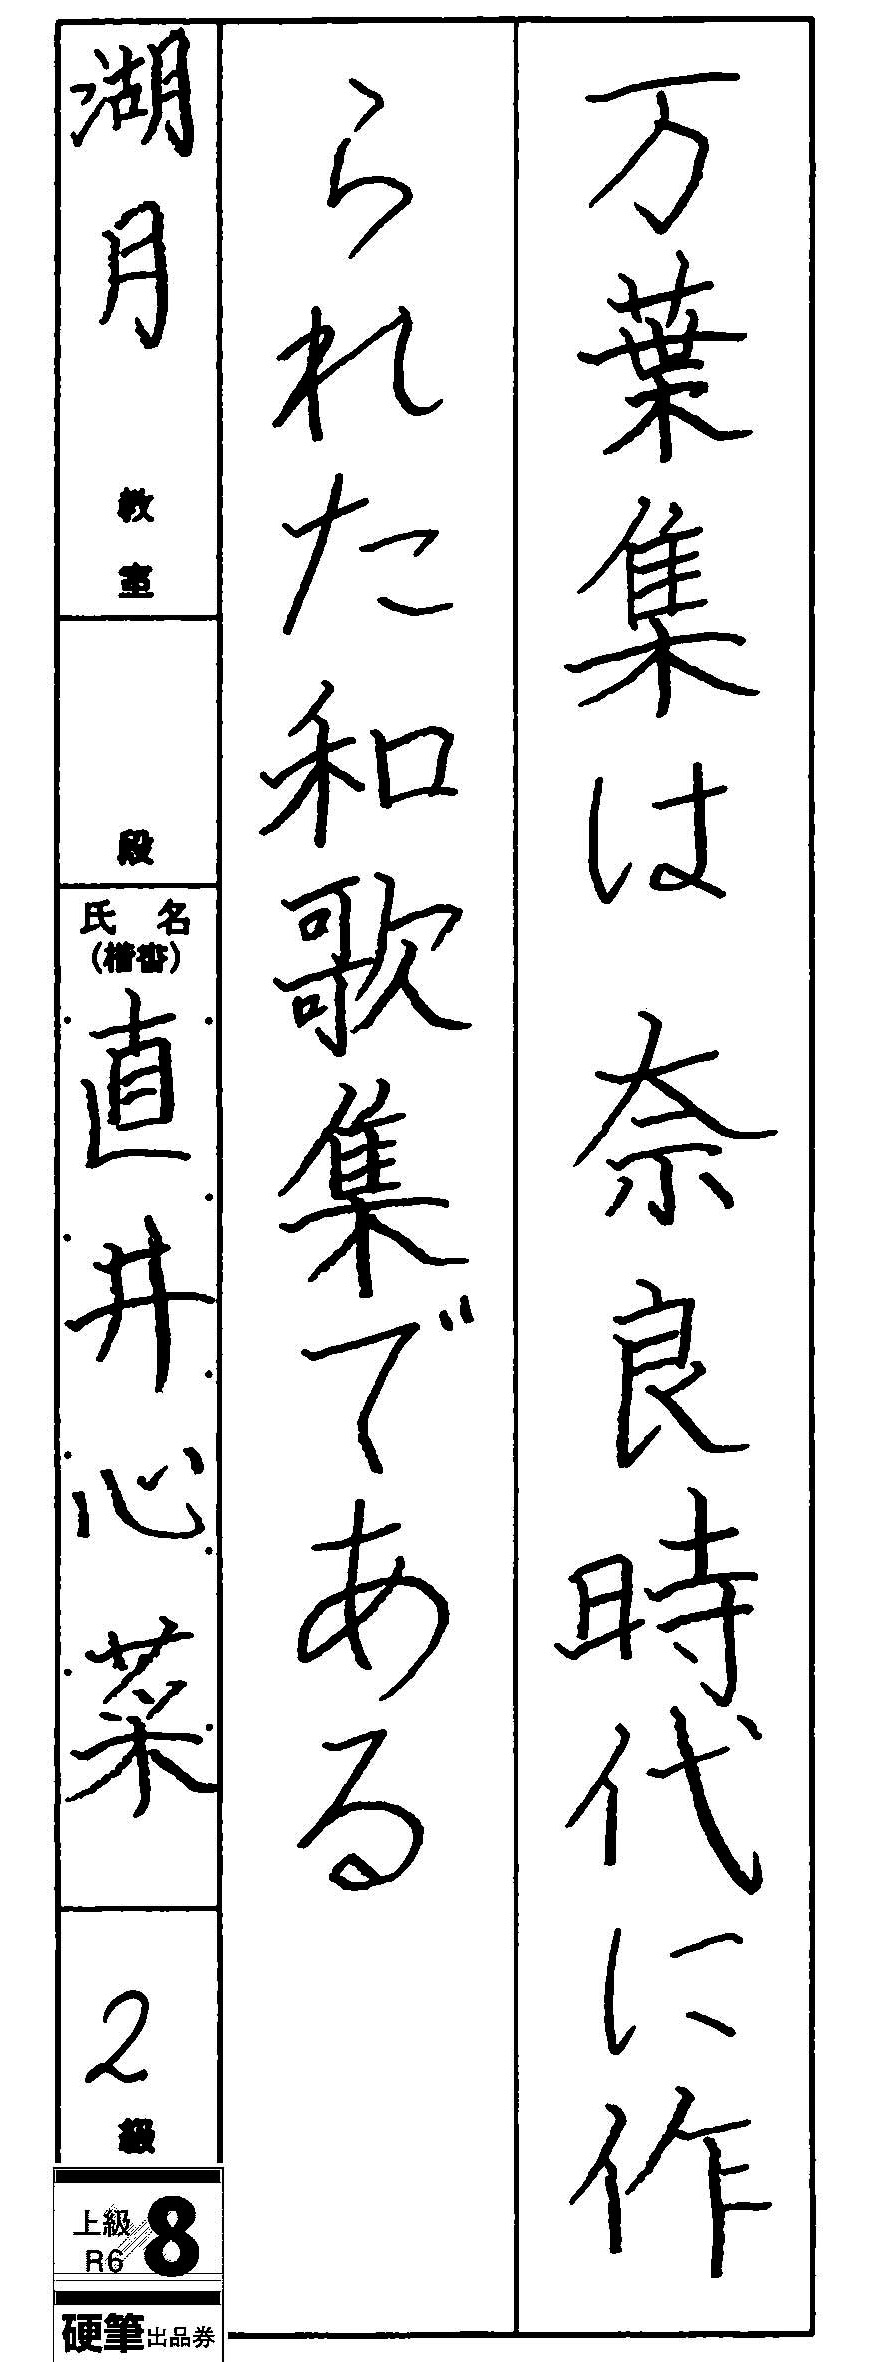 万葉集は奈良時代に作
られた和歌集である
湖月教室
段
氏名
(楷書)
直井心菜
2級
上級 8
R6
硬筆出品券